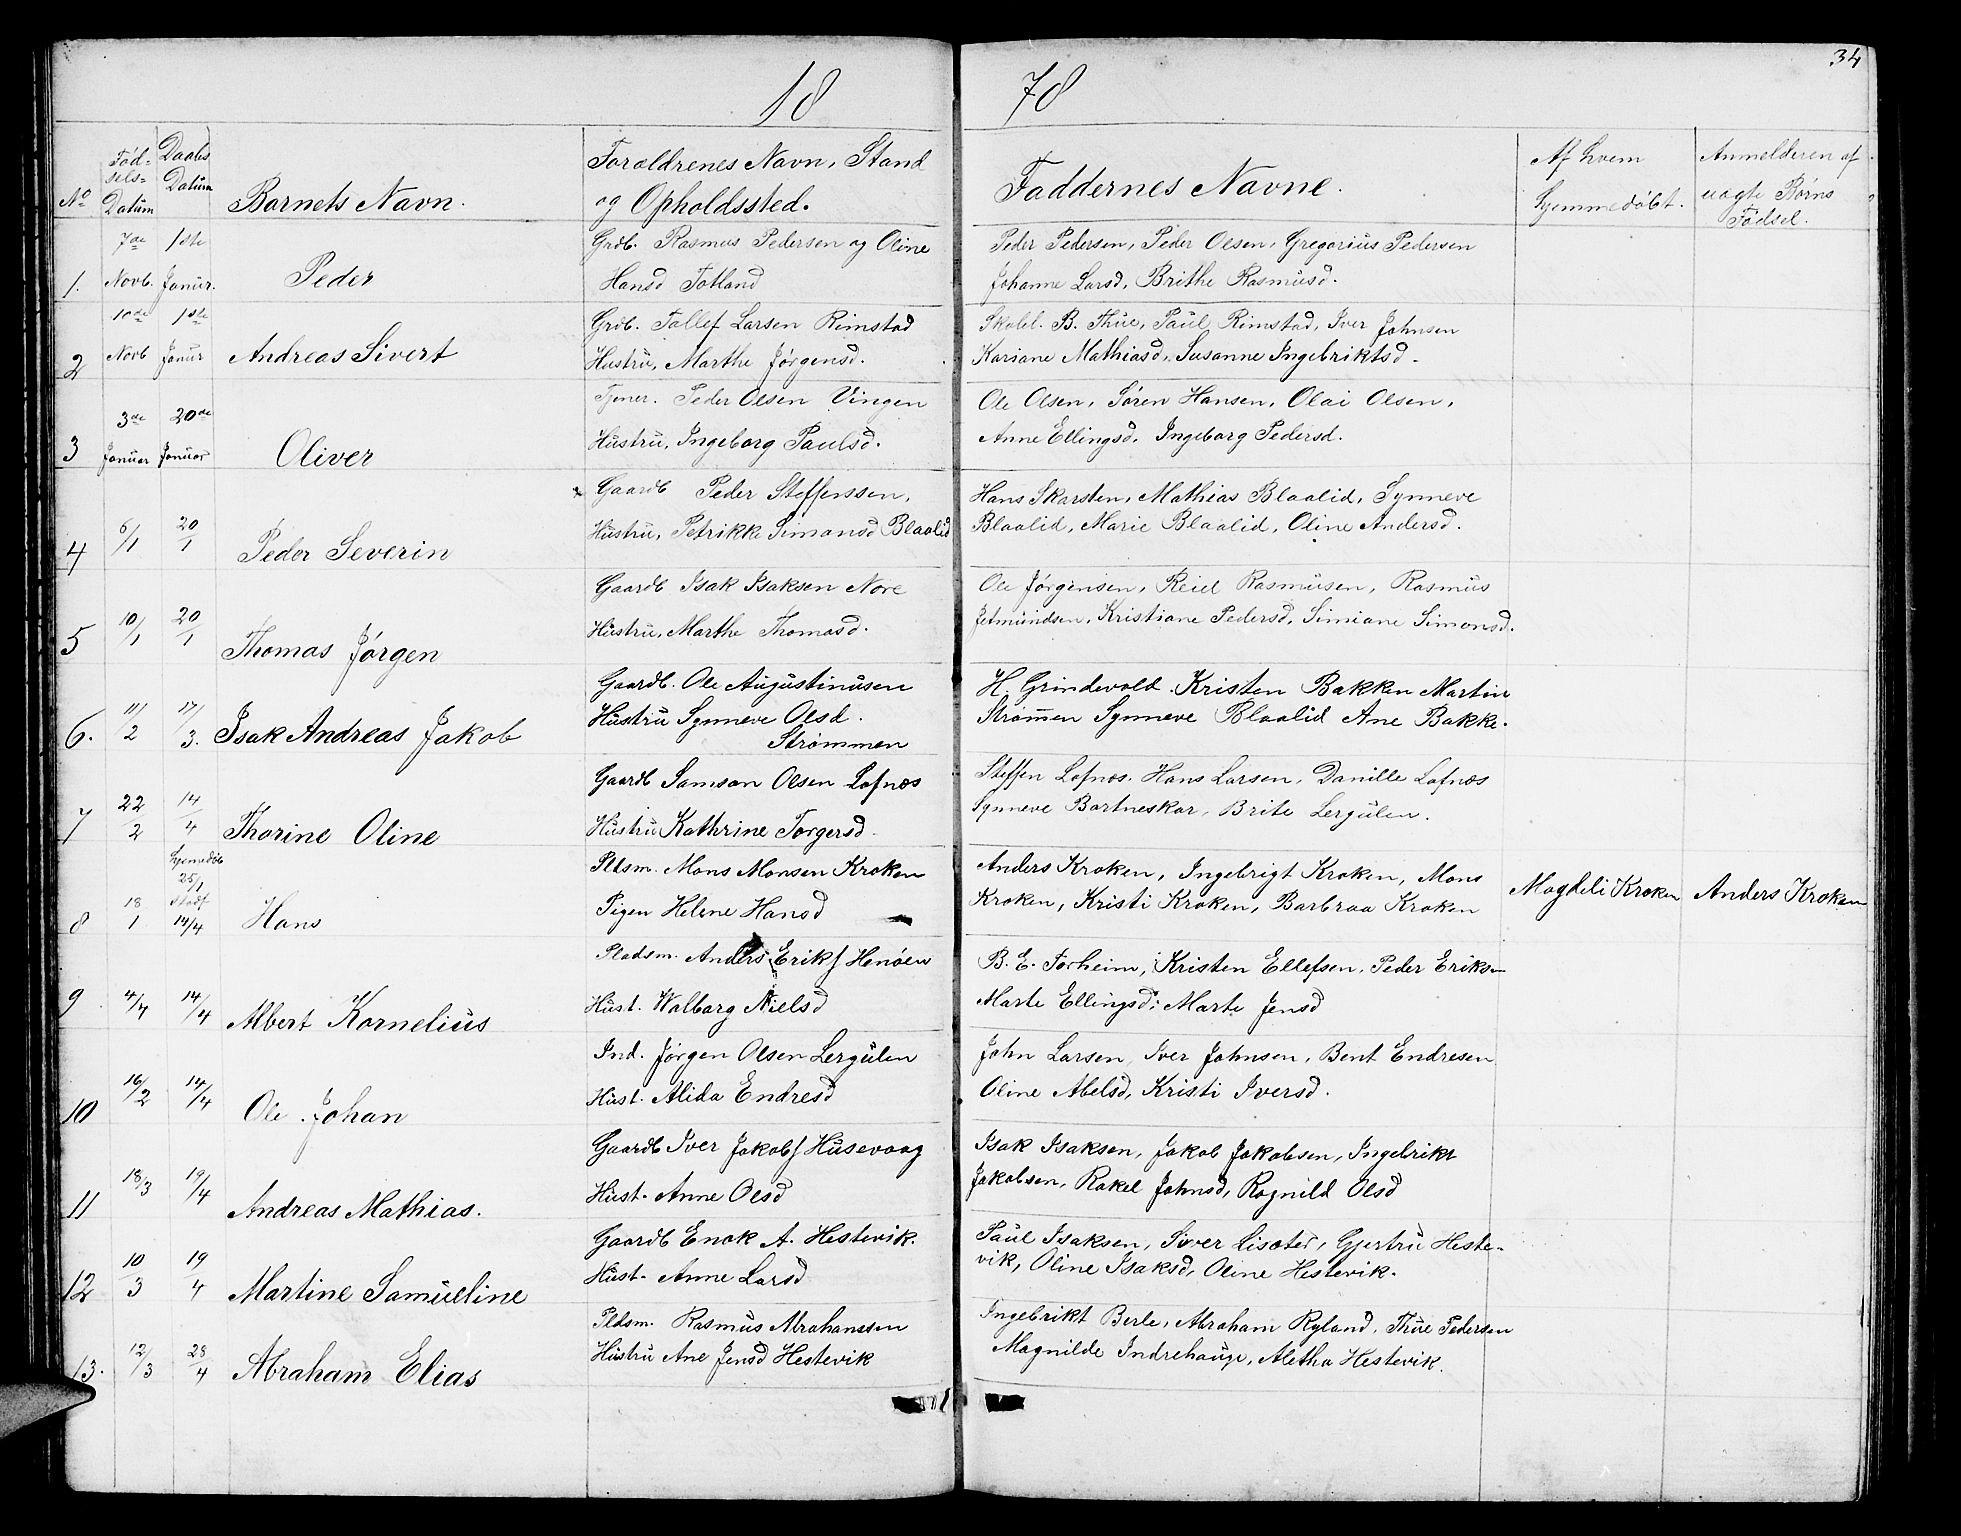 34
18 78
No
Fødsels-Datum
Daabs Datum
Barnets Navn.
Forældrenes Navn, Stand
og Opholdssted.
Faddernes Navne.
Af hvem
hjemmedøbt.
Anmelderen af
uægte Børns
Fødsel.
1. 7de Novb. 1ste Janur. Peder
Grdb. Rasmus Pedersen og Oline
Hansd Totland
Peder Pedersen, Peder Olsen, Gregorius Pedersen
Johanne Larsd, Brithe Rasmusd.
2 10de Novb 1ste Janur Andreas Sivert
Grdb. Tollef Larsen Rimstad
Hustru, Marthe Jørgensd.
Skolel. B. Thue, Paul Rimstad, Iver Johnsen
Kariane Mathiasd, Susanne Ingebriktsd.
3 3de Januar 20de Januar Oliver
Tjener. Peder Olsen Vingen
Hustru, Ingeborg Paulsd.
Ole Olsen, Søren Hansen, Olai Olsen,
Anne Ellingsd, Ingeborg Pedersd.
4 6/1 20/1 Peder Severin
Gaardb Peder Steffenssen,
Hustru, Petrikke Simonsd Blaalid
Hans Skarsten, Mathias Blaalid, Synneve
Blaalid, Marie Blaalid, Oline Andersd.
5 10/1 20/1 Thomas Jørgen
Gaardb Isak Isaksen Nore
Hustru, Marthe Thomasd.
Ole Jørgensen, Reiel Rasmusen, Rasmus
Jetmundsen, Kristiane Pedersd, Simiane Simonsd.
6. 11/2 17/3. Isak Andreas Jakob
Gaardb. Ole Augustinusen
Hustru Synneve Olsd.
Strømmen
H. Grindevold. Kristen Bakken Martin
Strømen Synneve Blaalid Ane Bakke.
7 22/2 14/4 Thorine Oline
Gaardb Samson Olsen Lofnæs
Hustru Kathrine Torgersd.
Steffen Lofnæs. Hans Larsen, Danille Lofnæs
Synneve Bortneskar, Brite Lergulen.
8 18/1 hjemedøb 25/1 Stadf 14/4 Hans
Pldsm. Mons Monsen Kroken
Pigen Helene Hansd
Anders Kroken, Ingebrigt Kroken, Mons
Kroken, Kristi Kroken, Barbraa Kroken
Magdeli Kroken
Anders Kroken
9 4/4 14/4 Albert Kornelius
Pladsm. Anders Eriks Henøen
Hust. Walborg Nielsd
B. E. Torheim, Kristen Ellefsen, Peder Eriksen
Marte Ellingsd, Marte Jensd
10 16/2 14/4 Ole Johan
Ind. Jørgen Olsen Lergulen
Hust. Alida Endresd
John Larsen, Iver Johnsen, Bent Endresen
Oline Abelsd, Kristi Iversd.
11 18/3 19/4 Andreas Mathias.
Gaardb Iver Jakobs Husevaag
Hust. Anne Olsd
Isak Isaksen, Jakob Jakobsen, Ingebrikt
Jakobsen, Rakel Johnsd, Ragnild Olsd
12 10/3 19/4 Martine Samueline
Gaardb Enok A. Hestevik.
Hust. Anne Larsd
Paul Isaksen, Siver Lisæter, Gjertru Heste-
vik, Oline Isaksd, Oline Hestevik.
13. 12/3 28/4 Abraham Elias
Pldsm. Rasmus Abrahamssen
Hustru Ane Jensd Hestevik
Ingebrikt Berle, Abraham Ryland, Thue Pedersen
Magnilde Indrehauge, Aletha Hestevik.